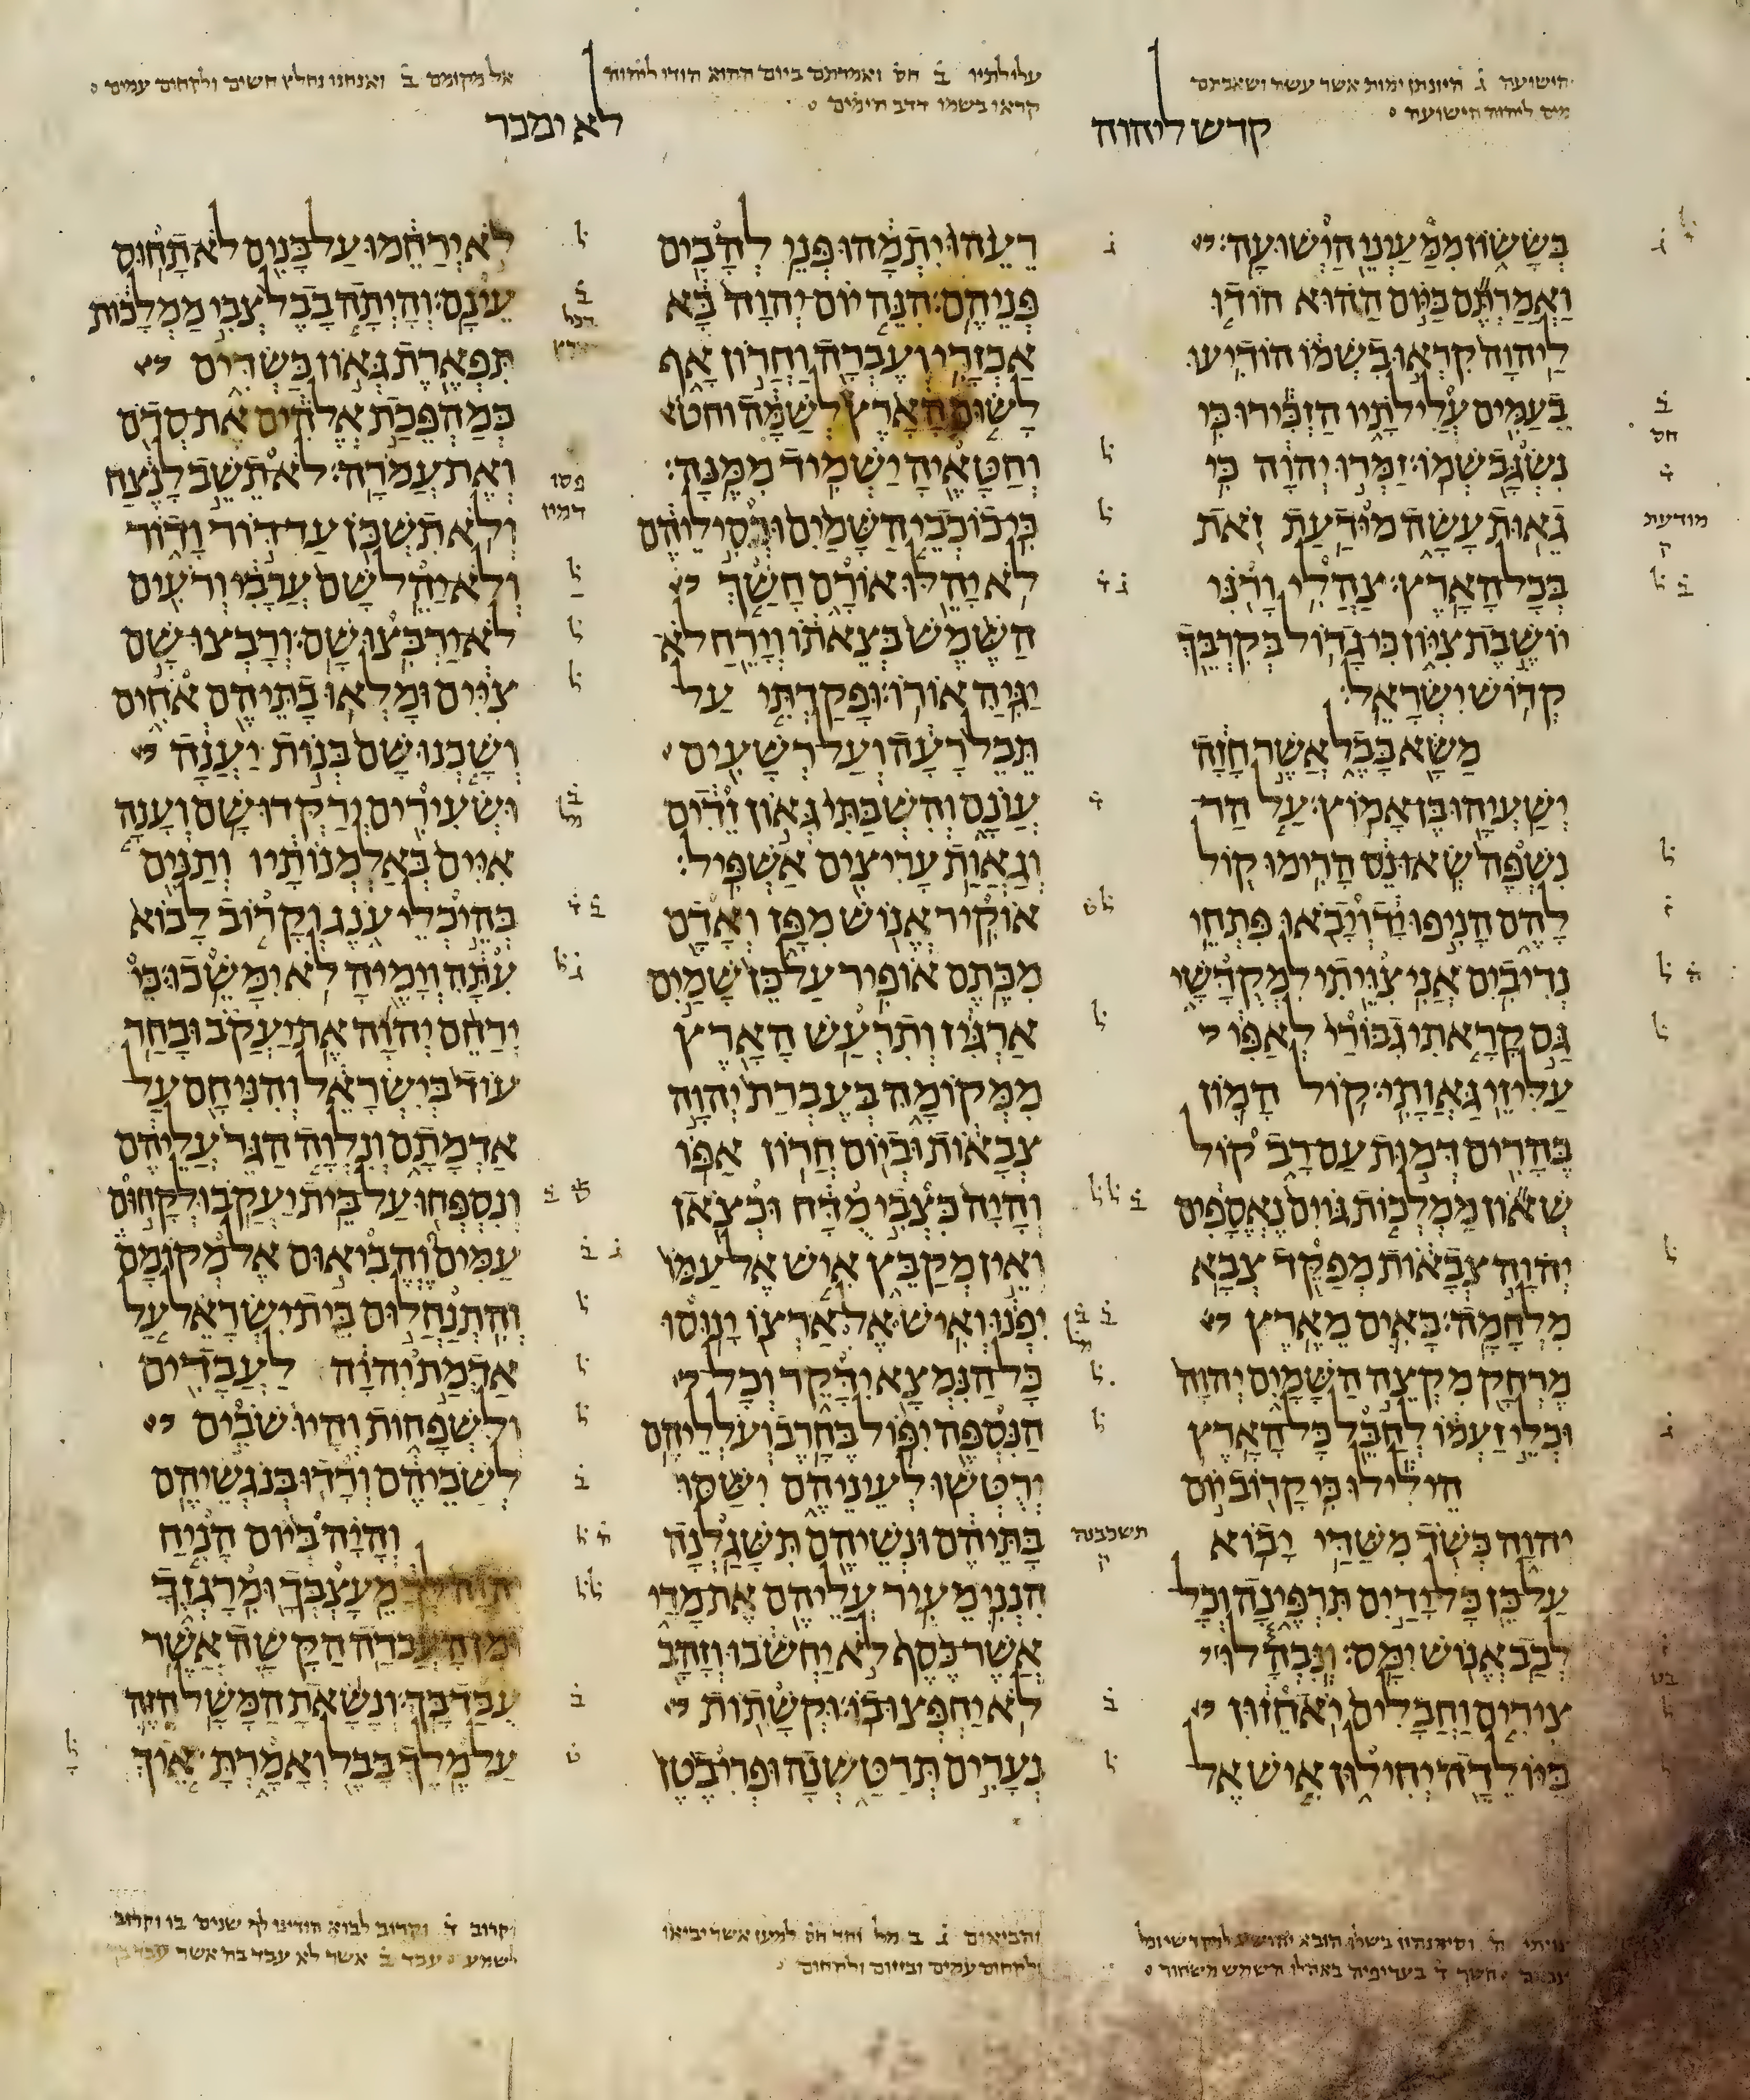 הישועה ג היונתן ימות אשר עשה ושאבתם
מים ליהוה הישועה
עלילתיו ב חס ואמרתם ביום ההוא הודו ליהוה
קראו בשמו דדב הימים
אל מקומם ב ואנחנו נחלץ חשים ולקחום עמים
קדש ליהוה
לא ימכר
בששון ממעיני הישועה׃
ואמרתם ביום ההוא הודו
ליהוה קראו בשמו הודיעו
בעמים עלילתיו הזכירו כי
נשגב שמו׃ זמרו יהוה כי
גאות עשה מידעת זאת
בכל הארץ׃ צהלי ורני
יושבת ציון כי גדול בקרבך
קדוש ישראל׃
משא בבל אשר חזה
ישעיהו בן אמוץ׃ על הר
נשפה שאו נס הרימו קול
להם הניפו יד ויבאו פתחי
נדיבים׃ אני צויתי למקדשי
גם קראתי גבורי לאפי
עליזי גאותי׃ קול המון
בהרים דמות עם רב קול
שאון ממלכות גוים נאספים
יהוה צבאות מפקד צבא
מלחמה׃ באים מארץ
מרחק מקצה השמים יהוה
וכלי זעמו לחבל כל הארץ
הילילו כי קרוב יום
יהוה כשד משדי יבוא
על כן כל ידים תרפינה וכל
לבב אנוש ימס׃ ונבהלו
צירים וחבלים יאחזון
כיולדה יחילון איש אל
רעהו יתמהו פני להבים
פניהם׃ הנה יום יהוה בא
אכזרי ועברה וחרון אף
לשום הארץ לשמה וחט
וחטאיה ישמיד ממנה׃
כי כוכבי השמים וכסיליהם
לא יהלו אורם חשך
השמש בצאתו וירח לא
יגיה אורו׃ ופקדתי על
תבל רעה ועל רשעים
עונם והשבתי גאון זדים
וגאות עריצים אשפיל׃
אוקיר אנוש מפז ואדם
מכתם אופיר׃ על כן שמים
ארגיז ותרעש הארץ
ממקומה בעברת יהוה
צבאות וביום חרון אפו
והיה כצבי מדח וכצאן
ואין מקבץ איש אל עמו
יפנו ואיש אל ארצו ינוסו
כל הנמצא ידקר וכל
הנספה יפול בחרב׃ ועלליהם
ירטשו לעיניהם ישסו
בתיהם ונשיהם תשגלנה
הנני מעיר עליהם את מדי
אשר כסף לא יחשבו וזהב
לא יחפצו בו׃ וקשתות
נערים תרטשנה ופרי בטן
לא ירחמו על בנים לא תחוס
עינם׃ והיתה בבל צבי ממלכות
תפארת גאון כשדים
כמהפכת אלהים את סדם
ואת עמרה׃ לא תשב לנצח
ולא תשכן עד דור ודור
ולא יהל שם ערבי ורעים
לא ירבצו שם׃ ורבצו שם
ציים ומלאו בתיהם אחים
ושכנו שם בנות יענה
ושעירים ירקדו שם׃ וענה
איים באלמנותיו ותנים
בהיכלי ענג וקרוב לבוא
עתה וימיה לא ימשכו׃ כי
ירחם יהוה את יעקב ובחר
עוד בישראל והניחם על
אדמתם ונלוה הגר עליהם
ונספחו על בית יעקב׃ ולקחום
עמים והביאום אל מקומם
והתנחלום בית ישראל על
אדמת יהוה לעבדים
ולשפחות והיו שבים
לשביהם ורדו בנגשיהם
והיה ביום הניח
יהוה לך מעצבך ומרגזך
ומן העבדה הקשה אשר
עבד בך׃ ונשאת המשל הזה
על מלך בבל ואמרת איך
מודעת
ק
תשכבנה
ק
והביאום ג ב מל וחד חס למען אשר יביאו
ולקחום עמים
וקרוב ד וקרוב לבוא הודינו לך
לשמע עבד ב אשר לא עבד בה אשר עבד בך